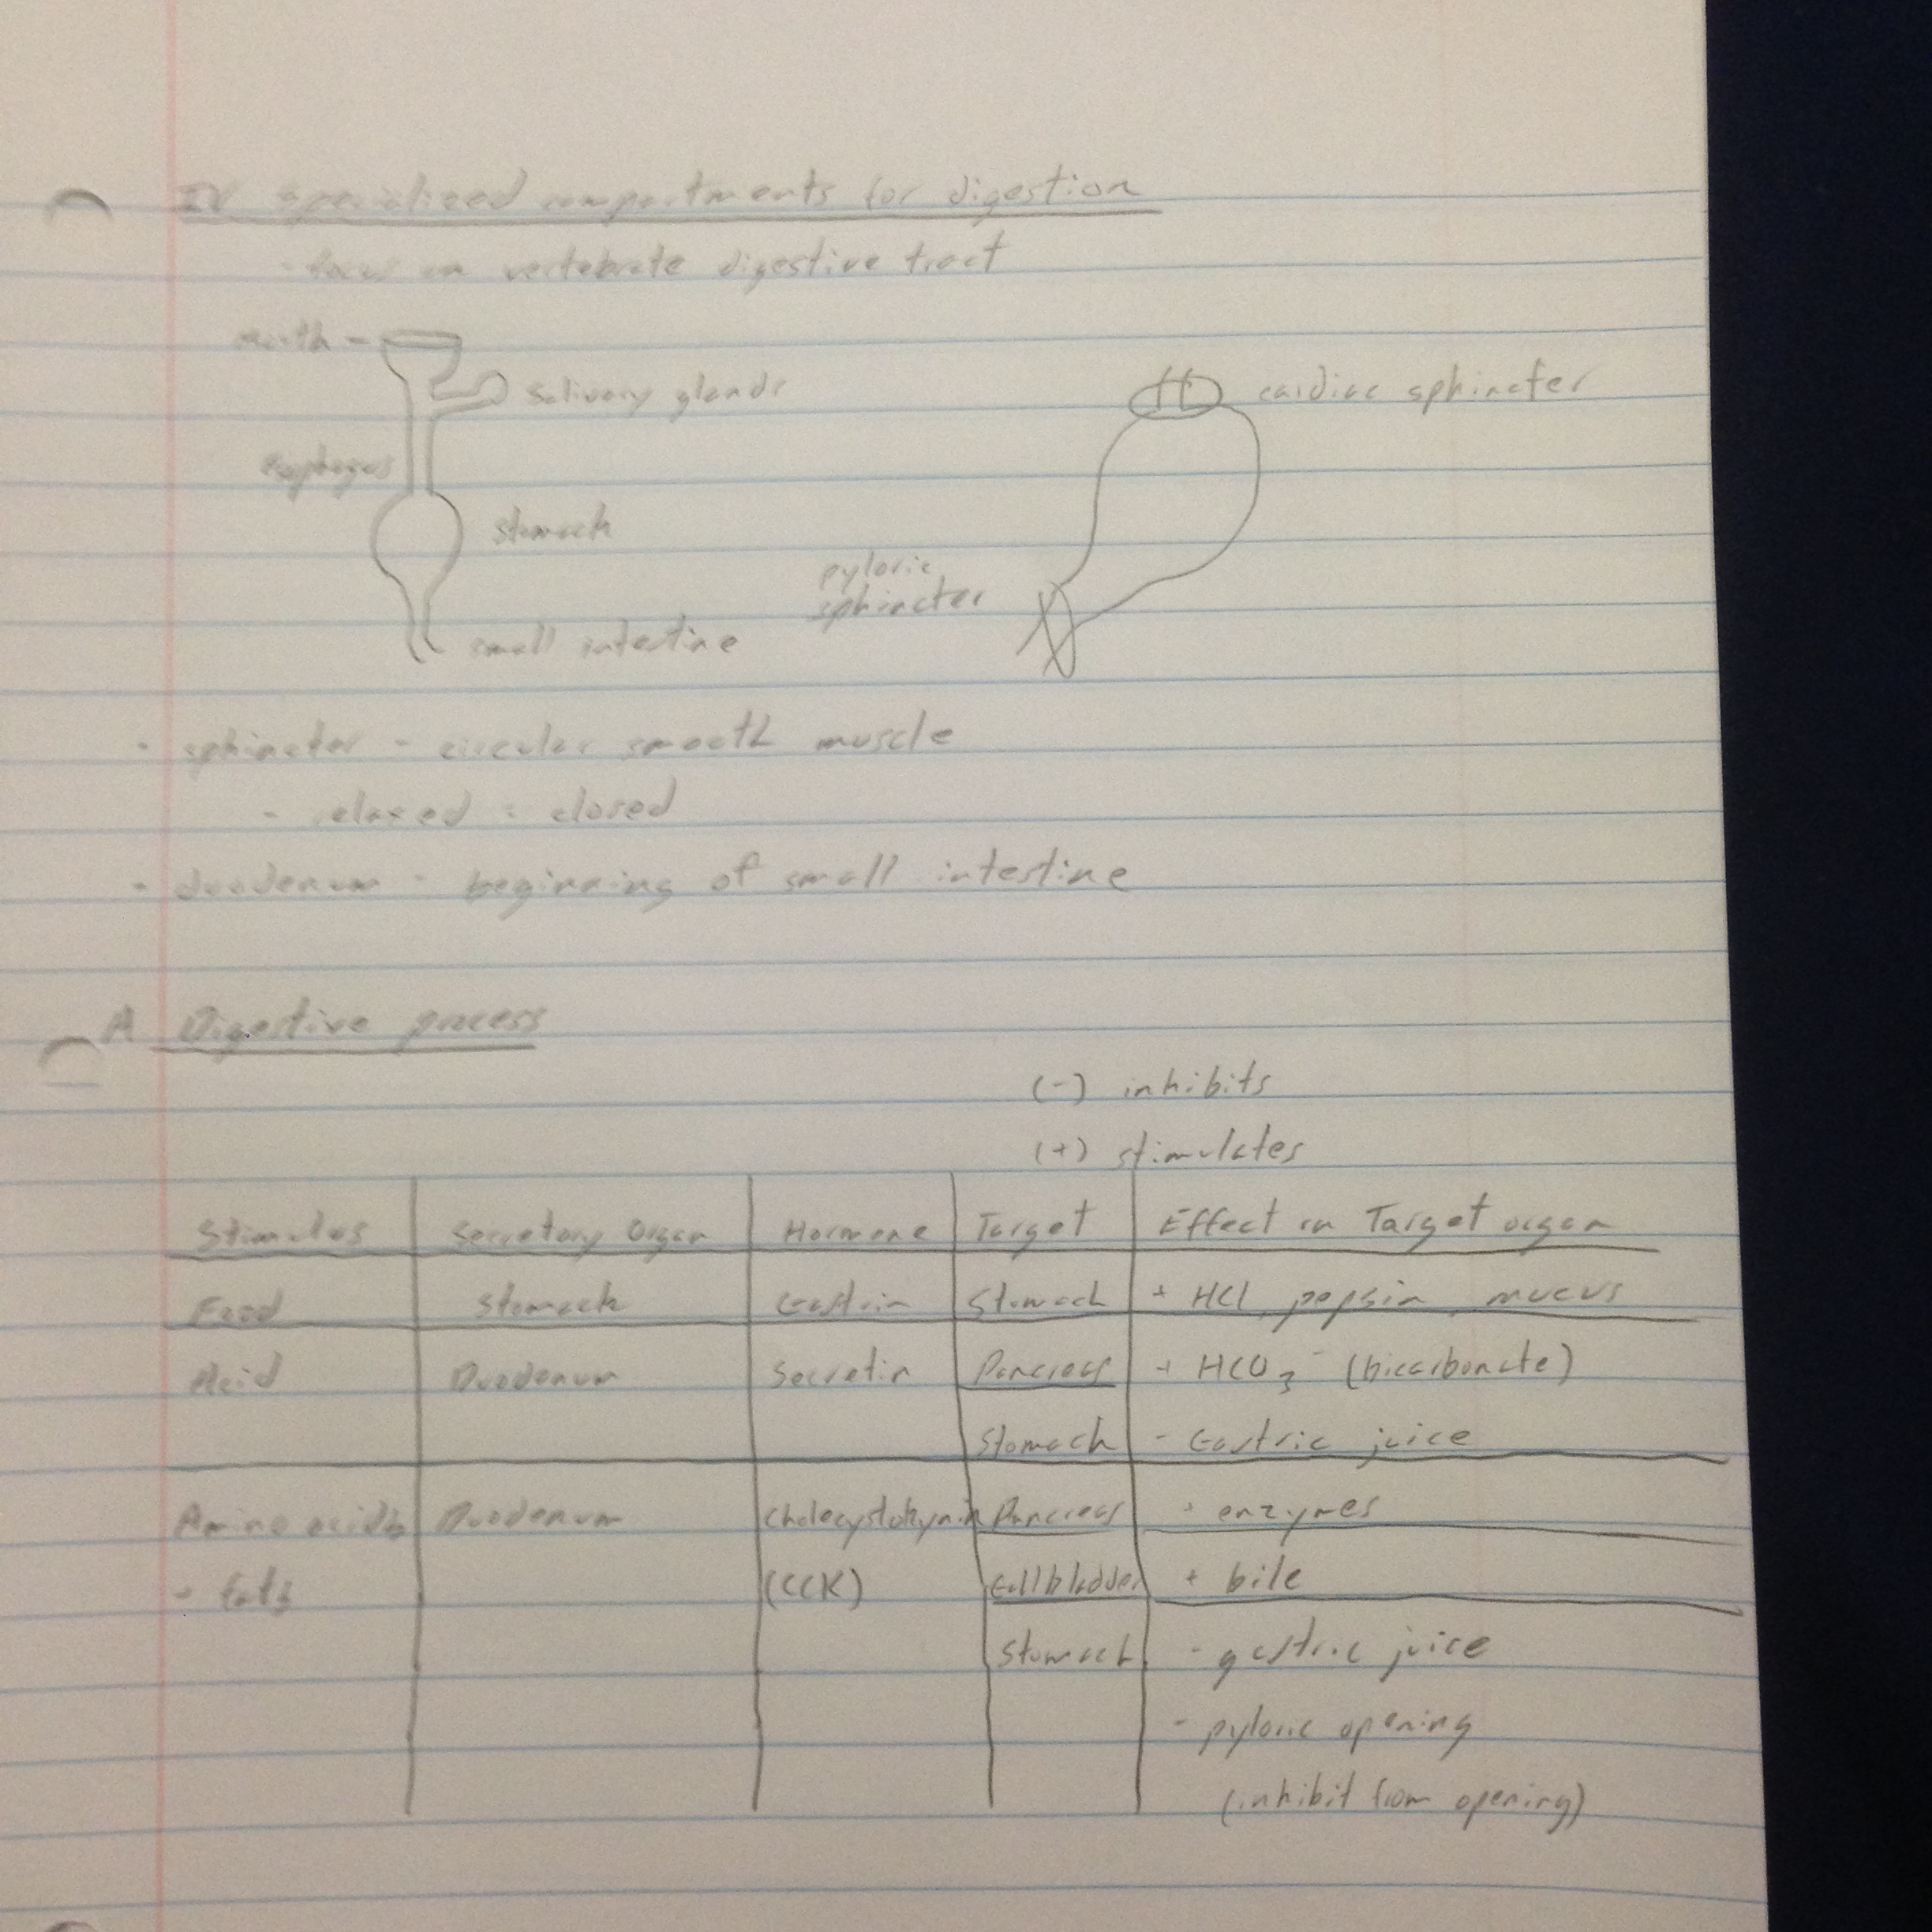 IV Specialized compartments for digestion
- focus on vertebrate digestive tract
mouth -
salivary glands
cardiac sphincter
esophagus
stomach
pyloric
sphincter
small intestine
· sphincter - circular smooth muscle
- relaxed = closed
- duodenum - beginning of small intestine
A Digestive process
(-) inhibits
(+) stimulates
Stimulus Secretory Organ Hormone Target Effect on Target organ
Food Stomach Gastrin Stomach + HCl, pepsin, mucus
Acid Duodenum Secretin Pancreas + HCO3- (bicarbonate)
Stomach - Gastric juice
Amino acids Duodenum Cholecystokynin Pancreas + enzymes
- fats (CCK) Gallbladder + bile
Stomach - gastric juice
- pyloric opening
(inhibit from opening)